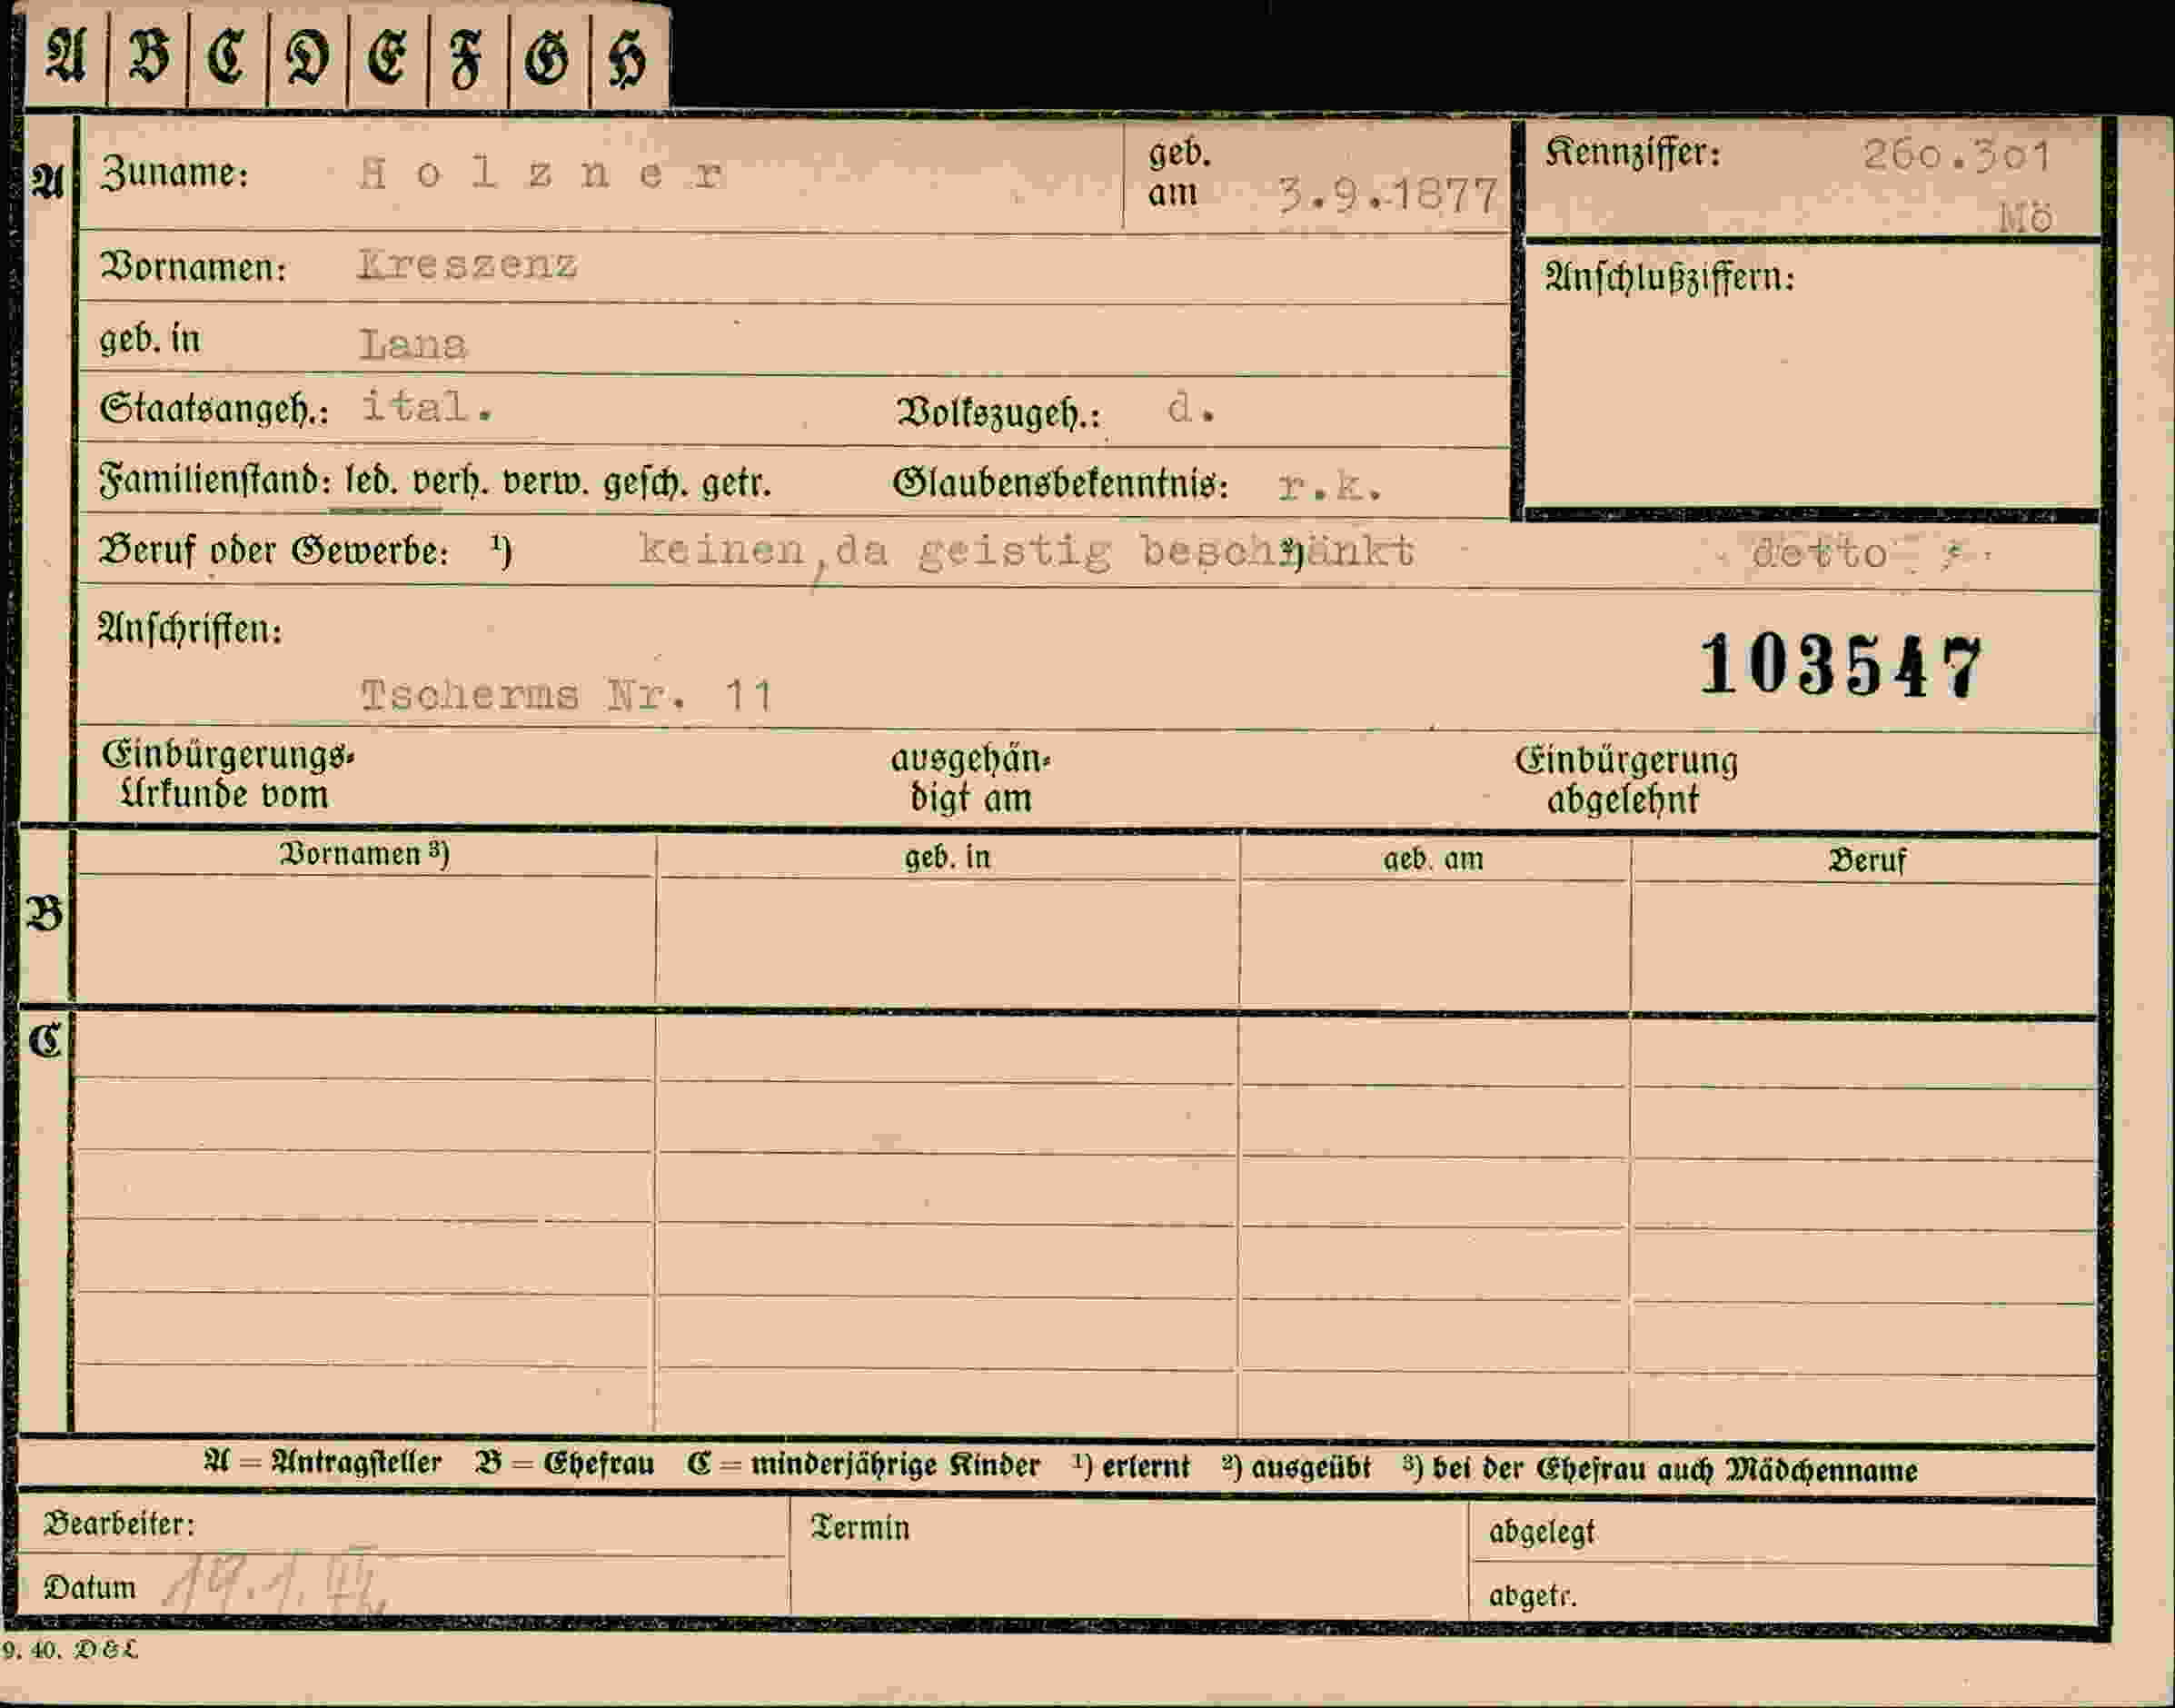 A B C D E F G H
A Zuname: Holzner geb. am 3.9.1877 Kennziffer: 260.301
Mö
Vornamen: Kreszenz Anschlußziffern:
geb. in Lana
Staatsangeh.: ital. Volkszugeh.: d.
Familienstand: led. verh. verw. gesch. getr. Glaubensbekenntnis: r.k.
Beruf oder Gewerbe: ¹) keinen, da geistig beschränkt ²) detto
Anschriften: 103547
Tscherms Nr. 11
Einbürgerungs- ausgehän- Einbürgerung
Urkunde vom digt am abgelehnt
Vornamen ³) geb. in geb. am Beruf
B
C
A = Antragsteller B = Ehefrau C = minderjährige Kinder ¹) erlernt ²) ausgeübt ³) bei der Ehefrau auch Mädchenname
Bearbeiter: Termin abgelegt
Datum abgetr.
9. 40. D & L